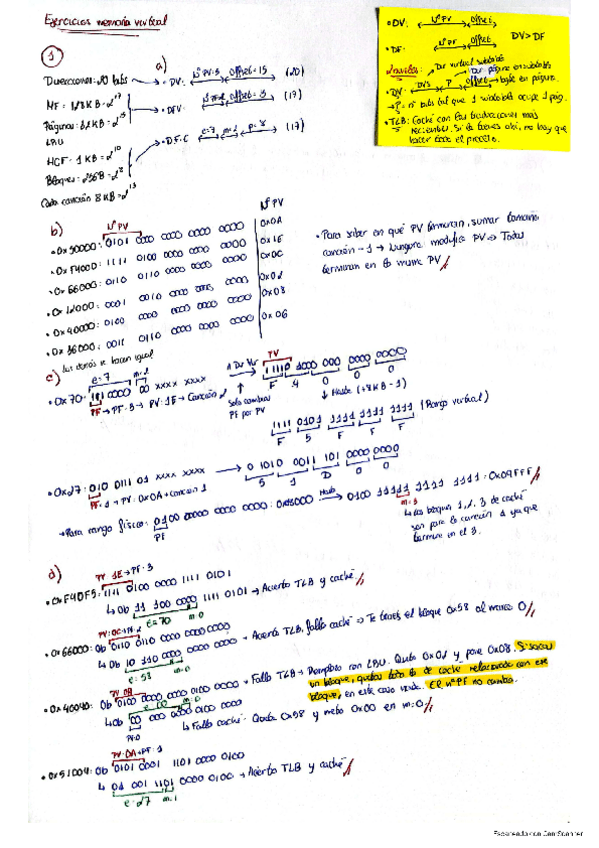 Ejercicios memoria virtual
• DV: Nº PV Offset
• DF: Nº PF Offset DV>DF
Dir virtual subtabla
Dir página en subtabla
• DV: P Offset → byte en página.
→ P = nº bits tal que 1 subtabla ocupe 1 pág.
• TLB: Caché con las traducciones más
recientes. Si lo tienes ahí, no hay que
hacer todo el proceso.
①
a)
Direcciones: 20 bits → DV: Nº PV: 5 Offset = 15 (20)
MF = 128 KB = 2^17
→ DFV: Offset = 15 (17)
Páginas: 32 KB = 2^15
LRU
→ DF-C e=7 m=2 p=8 (17)
MCF = 1 KB = 2^10
Bloques = 256B = 2^8
Cada canción 8 KB = 2^13
b)
Nº PV
Nº PV
• 0x50000: 0101 0000 0000 0000 0000 0x0A
• 0xF4000: 1111 0100 0000 0000 0000 0x1E
• 0x66000: 0110 0110 0000 0000 0000 0x0C
• 0x12000: 0001 0010 0000 0000 0000 0x02
• 0x40000: 0100 0000 0000 0000 0000 0x08
• 0x36000: 0011 0110 0000 0000 0000 0x06
• Para saber en qué PV terminan, sumar tamaño
canción - 1 → Ninguna modifica PV → Todas
terminan en la misma PV //
Los demás se hacen igual
c)
e=7 m=2
• 0x70: 111 0000 00 xxxx xxxx
PF → PF: 3 → PV: 1E → Canción 2
A Dir Vir
Solo cambias
PF por PV
PV
11110 1000 000 0000 0000
F 4 0 0 0
↓ Hasta (+8KB - 1)
1111 0101 1111 1111 1111 (Rango virtual)
F 5 F F F
• 0x27: 010 0111 01 xxxx xxxx → 0 1010 0011 101 0000 0000
PF: 1 → PV: 0x0A → canción 1
5 1 D 0 0
→ Para rango físico: 0100 0000 0000 0000 0: 0x08000 Hasta → 0100 11111 1111 1111: 0x09FFF //
PF
m=3
↳ Los bloques 1, 2, 3 de caché
son para la canción 1 ya que
termina en el 3.
d)
PV: 1E → PF: 3
• 0xF40F5: 1111 0100 0000 1111 0101
↳ 0b 11 100 0000 1111 0101 → Acierto TLB y caché //
e=70 m=0
PV: 0C → PF: 2
• 0x66000: 0b 0110 0110 0000 0000 0000 → Acierto TLB, fallo caché → Te traes el bloque 0x58 al marco 0 //
↳ 0b 10 110 0000 0000 0000
e: 58 m=0
PV: 08
• 0x40040: 0b 0100 0000 0000 0100 0000 → Fallo TLB → Reemplazo con LRU. Quito 0x02 y pone 0x08. Si sacas
un bloque, quitas todo lo de caché relacionado con ese
bloque, en este caso nada. El nº PF no cambia.
↳ 0b 00 000 0000 0100 0000
PF: 0
↳ Fallo caché: Quito 0x58 y meto 0x00 en m:0 //
PV: 0A → PF: 1
• 0x51D04: 0b 0101 0001 1101 0000 0100
↳ 01 001 1101 0000 0100 → Acierto TLB y caché //
e: 27 m: 1
Escaneado con CamScanner